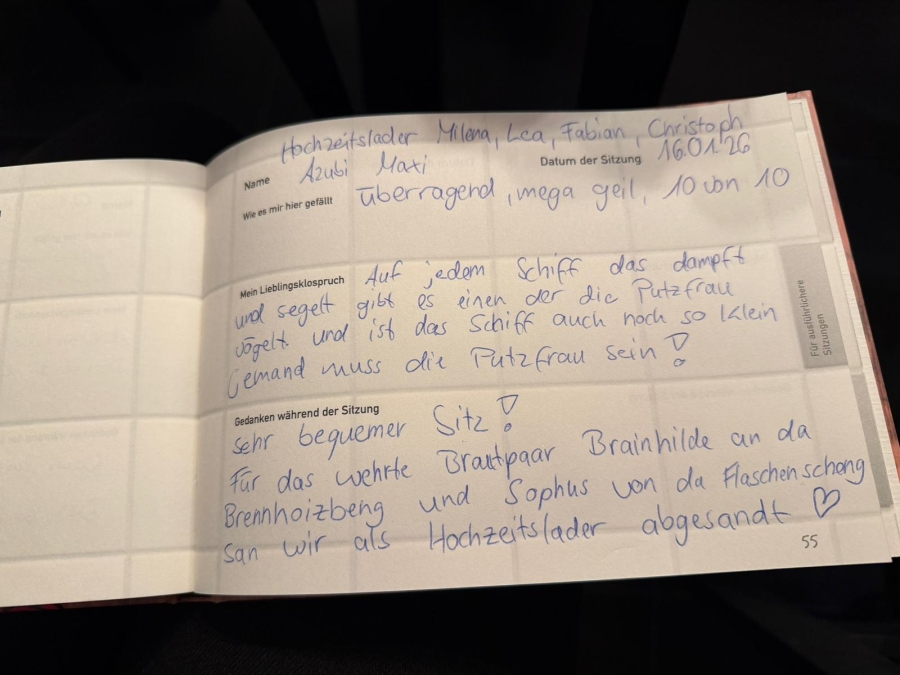 Hochzeitslader Milena, Lea, Fabian, Christoph
Name Azubi Maxi Datum der Sitzung 16.01.26
Wie es mir hier gefällt überragend, mega geil, 10 von 10
Mein Lieblingsklospruch Auf jedem Schiff das dampft
und segelt gibt es einen der die Putzfrau
vögelt und ist das Schiff auch noch so klein
jemand muss die Putzfrau sein!
Für ausführlichere
Sitzungen
Gedanken während der Sitzung
sehr bequemer Sitz!
Für das wehrte Brautpaar Brainhilde an da
Brennhoizbeng und Sophus von da Flaschenschong
san wir als Hochzeitslader abgesandt ♡
55